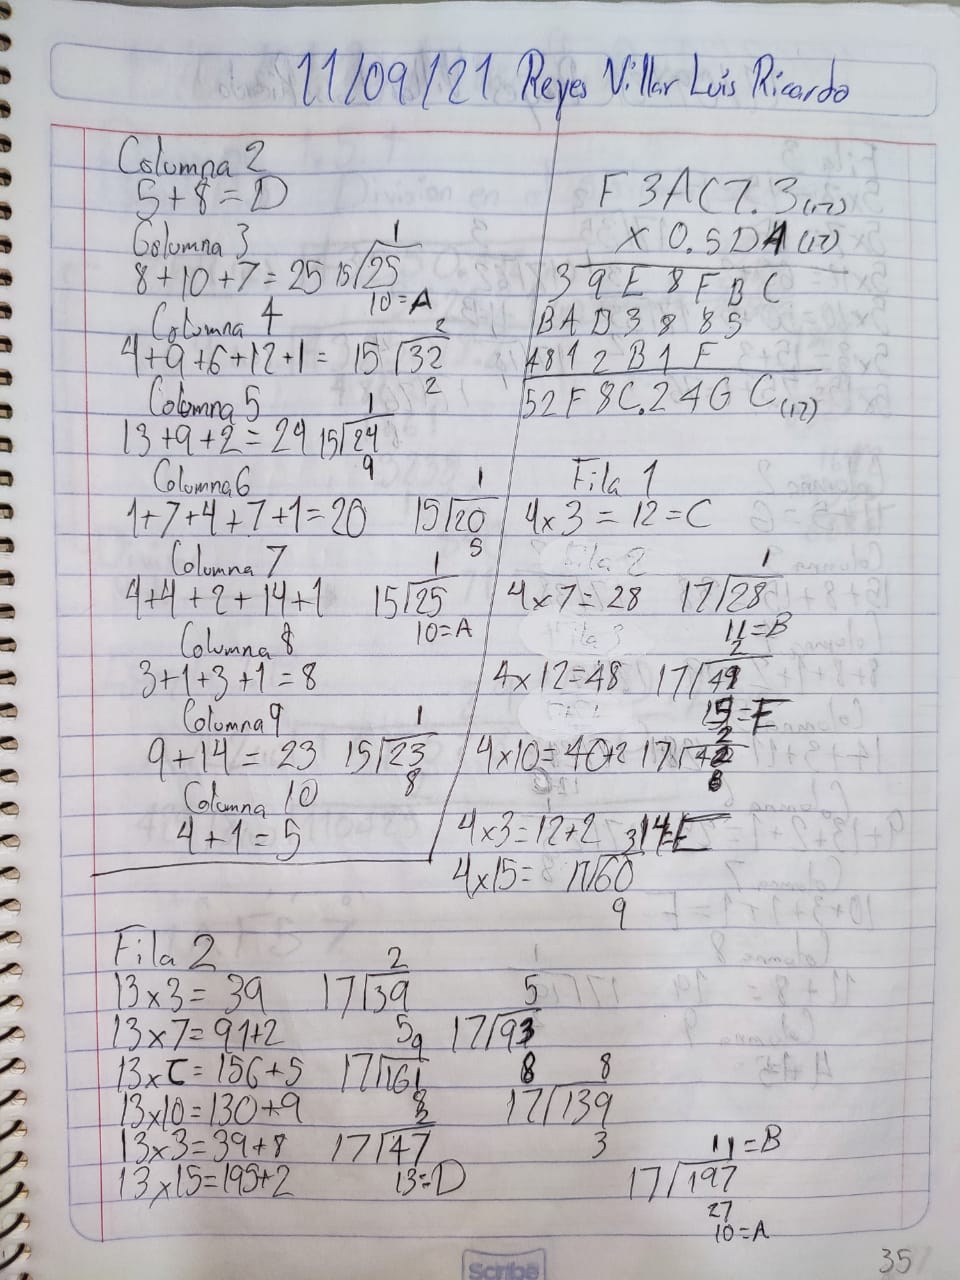 11/09/21 Reyes Villar Luis Ricardo
Columna 2
5+8=D
Columna 3
1
8+10+7=25 15/25
10=A
Columna 4
2
4+9+6+12+1= 15/32
2
Columna 5
1
13+9+2=24 15/24
9
Columna 6
1
1+7+4+7+1=20 15/20
5
Columna 7
1
4+4+2+14+1 15/25
10=A
Columna 8
3+1+3+1=8
Columna 9
1
9+14=23 15/23
8
Columna 10
4+1=5
F3AC7.3(17)
x 0.5D4(17)
39E8FBC
BAD3885
4812B1F
52F8C.24GC(17)
Fila 1
4x3=12=C
Fila 2
1
4x7=28 17/28
11=B
Fila 3
2
4x12=48 17/49
15=F
2
4x10=40+2 17/42
8
4x3=12+2 14=E
3
4x15= 17/60
9
Fila 2
2
13x3=39 17/39
5
5
13x7=91+2 17/93
8
9
13xC=156+5 17/161
8
8
13x10=130+9 17/139
3
2
13x3=39+8 17/47
13=D
11=B
13x15=195+2 17/197
27
10=A
Scribe
35